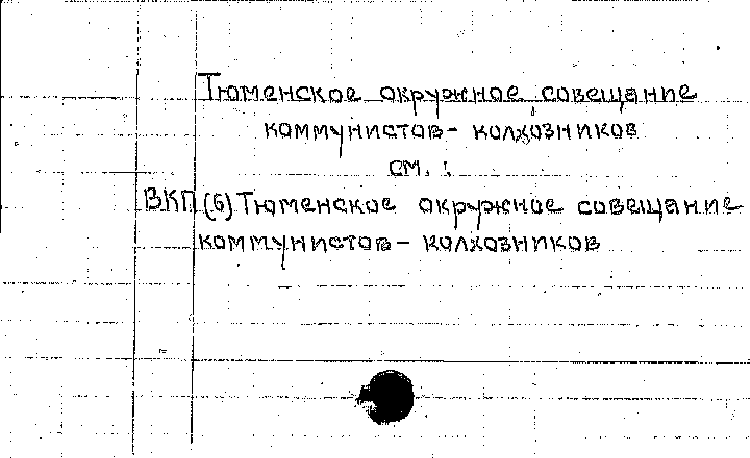 Тюменское окружное совещание
коммунистов - колхозников
см. :
ВКП(б) Тюменское окружное совещание
коммунистов - колхозников